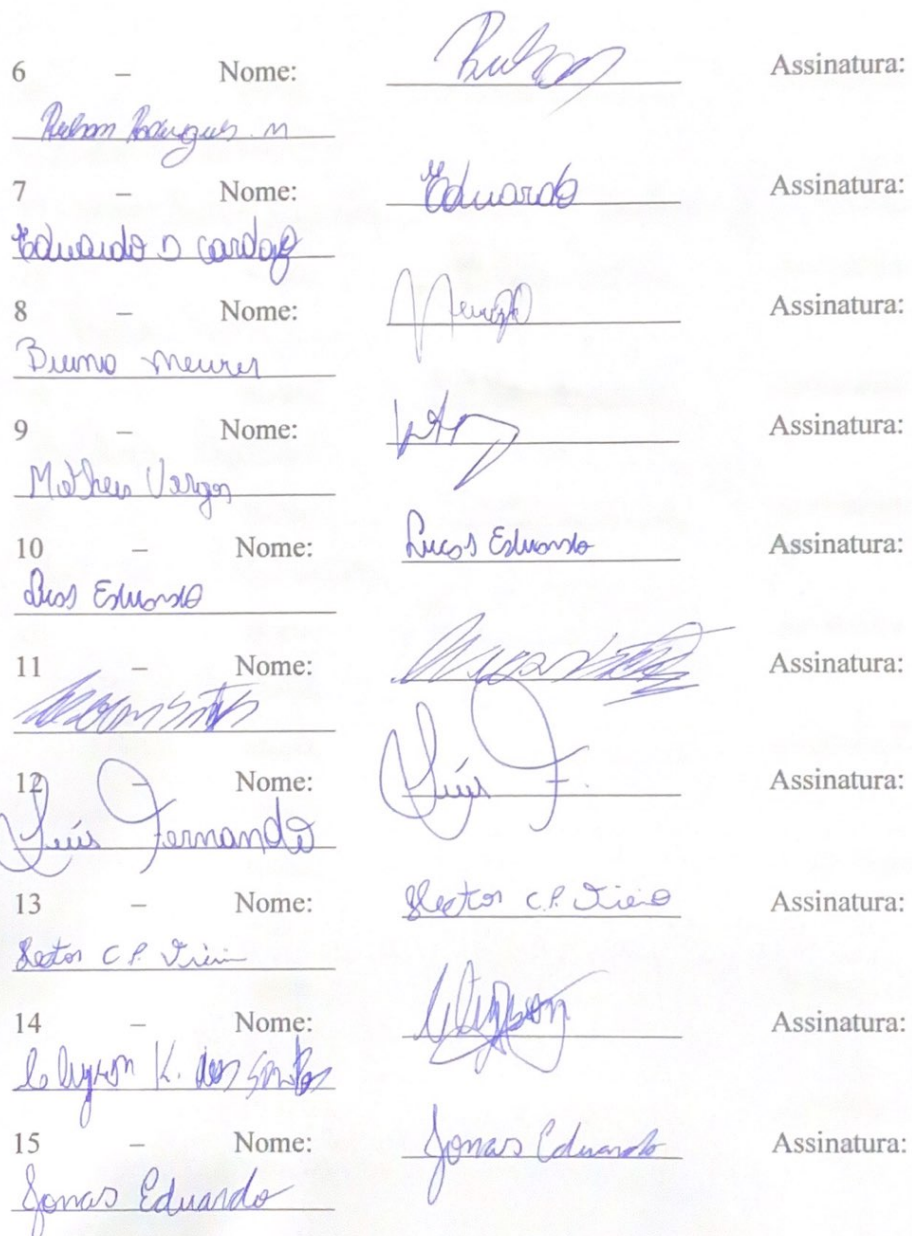 6 – Nome: Assinatura:
Rodrigues M
7 – Nome: Eduardo Assinatura:
Eduardo D Cardozo
8 – Nome: Assinatura:
Bruno Meurer
9 – Nome: Assinatura:
Matheus Vargas
10 – Nome: Lucas Eduardo Assinatura:
Lucas Eduardo
11 – Nome: Assinatura:
12 – Nome: Luís F. Assinatura:
Luís Fernando
13 – Nome: C.P. Assinatura:
C.P.
14 – Nome: Assinatura:
K. dos Santos
15 – Nome: Jonas Eduardo Assinatura:
Jonas Eduardo